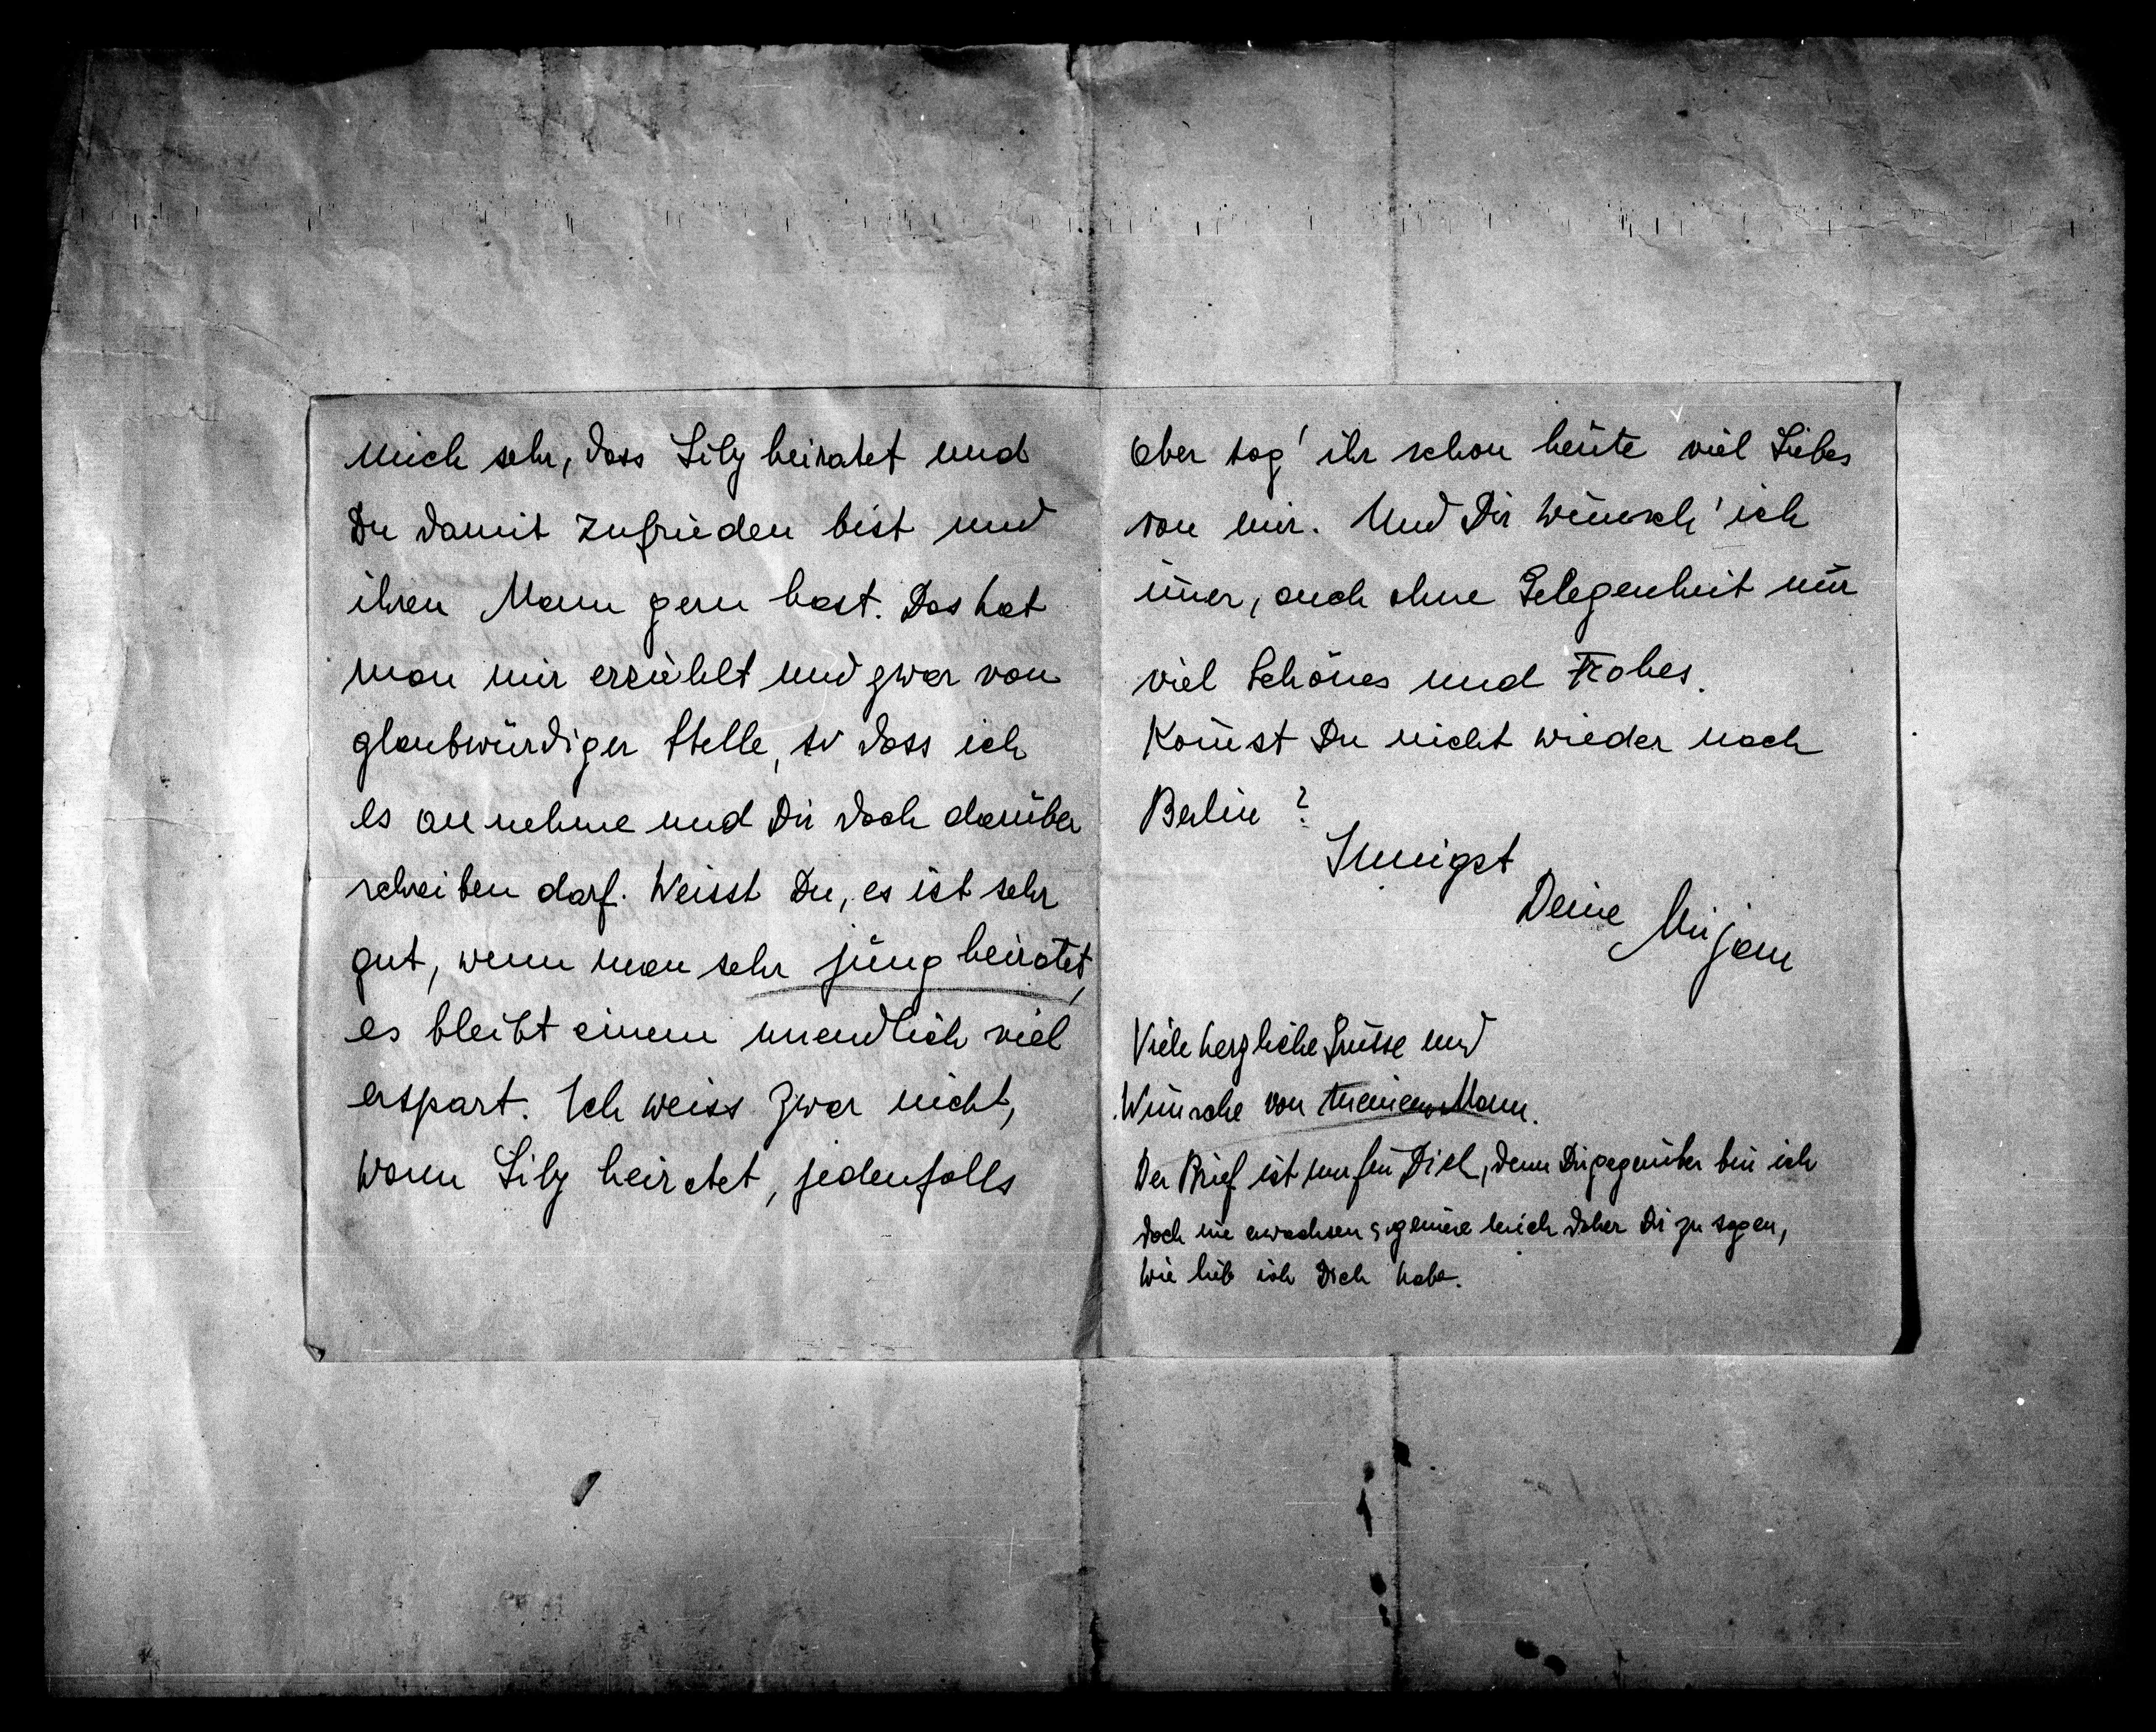 mich sehr, dass Lily heiratet und
Du damit zufrieden bist und
ihren Mann gern hast. Das hat
man mir erzählt und zwar von
glaubwürdiger Stelle, so dass ich
es annehme und Dir doch darüber
schreiben darf. Weisst Du, es ist sehr
gut, wenn man sehr jung heiratet,
es bleibt einem unendlich viel
erspart. Ich weiss zwar nicht,
wann Lily heiratet, jedenfalls
aber sag' ihr schon heute viel Liebes
von mir. Und Dir wünsch' ich
im̄er, auch ohne Gelegenheit nur
viel Schönes und Frohes.
Kom̄st Du nicht wieder nach
Berlin?
Innigst
Deine Mirjam
Viele herzliche Grüsse und
Wünsche von meinem Mann.
Der Brief ist nur für Dich, denn Dir gegenüber bin ich
doch nie erwachsen u. geniere mich daher Dir zu sagen,
wie lieb ich Dich habe.